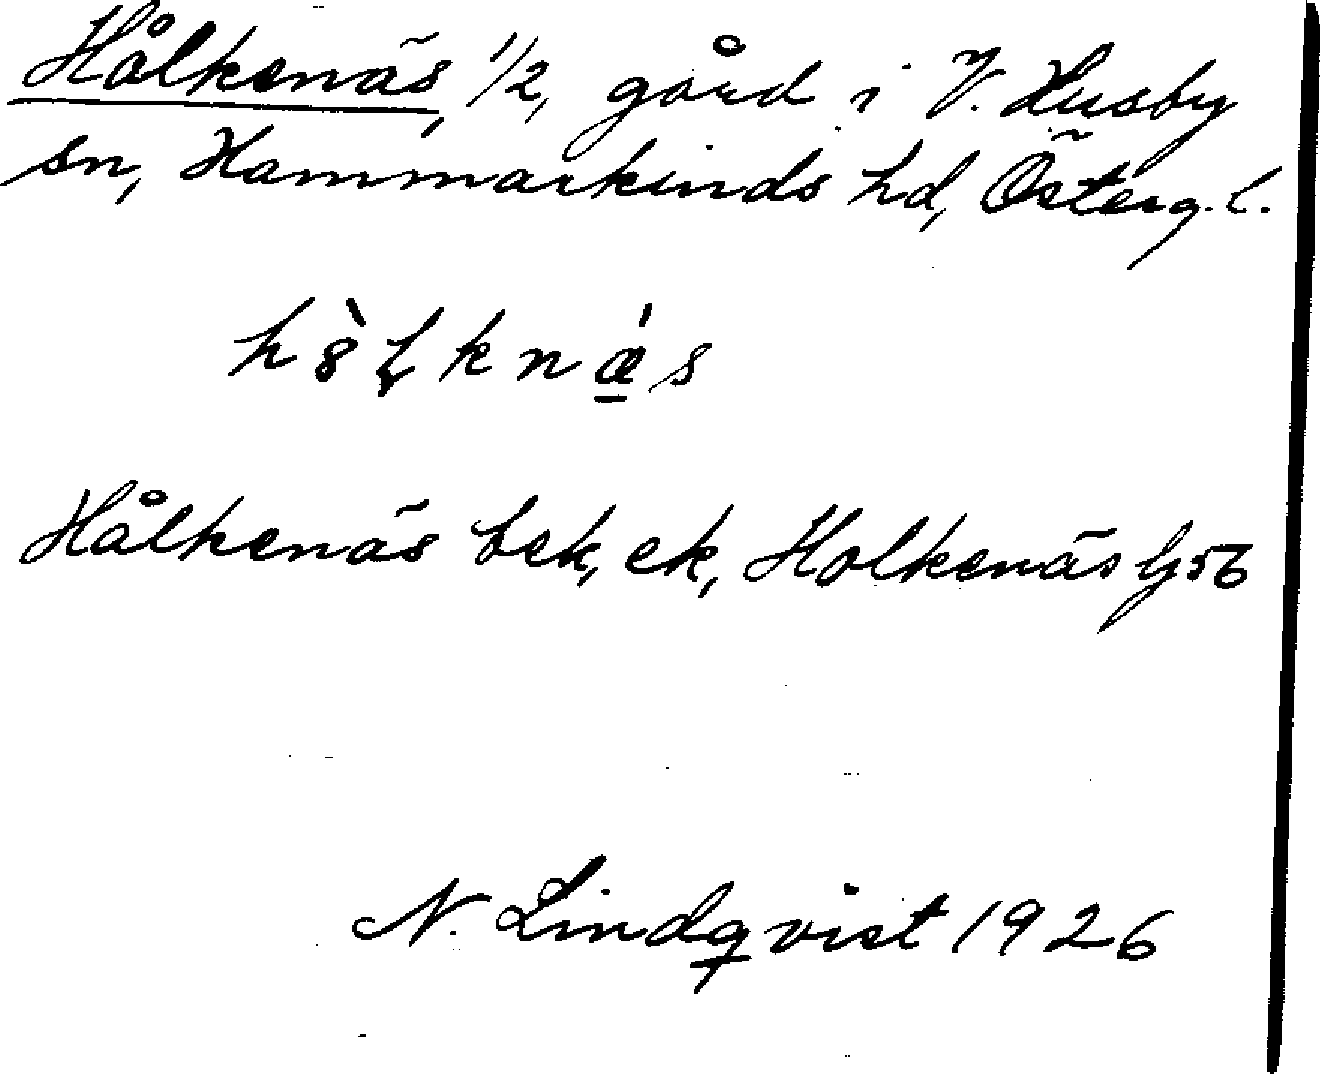 Hålkenäs, 1/2, gård i V. Husby
sn, Hammarkinds hd, Österg. l.
h8̀ɽknǽ̲s
Hålkenäs bek, ek, Holkenäs Gjb
N. Lindqvist 1926